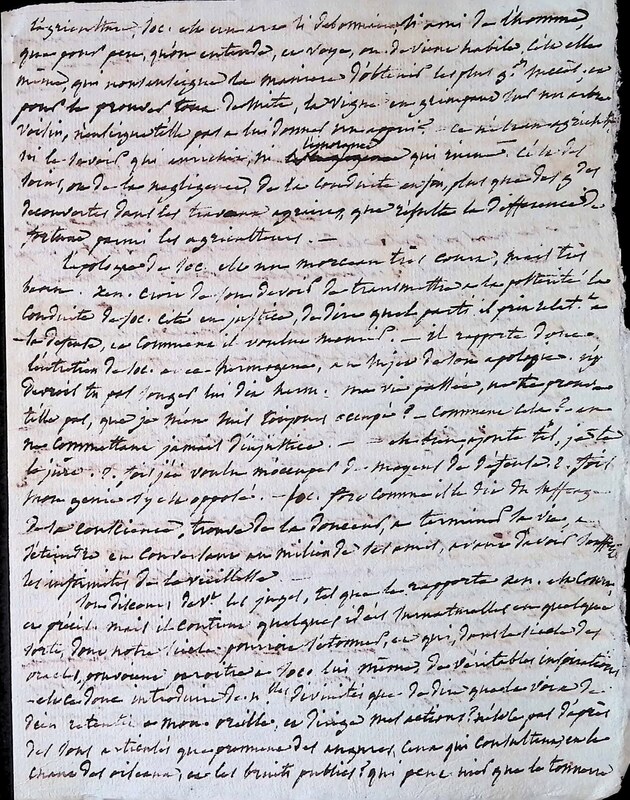 l'agriculture, Soc. elle est un art si débonnaire, si ami de l'homme,
que pour peu qu'on entende, et voye, on devient habile, c'est elle
même, qui nous enseigne la maniere d'obtenir les plus g.ds succès. et
pour le prouver tout de suite, la vigne en grimpant sur un arbre
voisin, n'enseigne telle pas a lui donner un appui? - ce n'est en agriculture
ni le savoir qui enrichit, ni l'ignorance qui ruine. C'est des
soins, ou de la negligence, de la conduite enfin, plus que des g.des
decouvertes dans les travaux agraires, que résulte la difference de
fortune parmi les agriculteurs. -
L'apologie de Soc. est un morceau très court, mais très
beau. Xen. croit de son devoir de transmettre a la postérité la
conduite de Soc. cité en justice, de dire quel parti il prit relat.t a
sa défense, et comment il voulut mourir. - Il rapporte donc
l'entretien de Soc. avec hermogene, au sujet de son apologie. n'y
devrois tu pas songer lui dit herm. ma vie passée, ne te prouve
telle pas, que je m'en suis toujours occupé? - comment cela? - en
ne commettant jamais d'injustice. - eh bien ajoute t'il, je te
le jure. 2 fois j'ai voulu m'occuper de moyens de défense 2 fois
mon genie s'y est opposé. - Soc. fort comme il le dit du suffrage
de sa conscience, trouve de la douceur, a terminer sa vie, a
s'eteindre en conversant au milieu de ses amis, avant d'avoir souffert
les infirmités de la vieillesse
Son discours dev.t les juges, tel que le rapporte Xen. est court
et précis mais il contient quelques idées surnaturelles en quelque
sorte, dont notre siecle pourroit s'etonner, et qui, dans le siecle des
oracles, pouvoient paroitre a Soc. lui même, de véritables inspirations
- est ce donc introduire de n.lles divinités que de dire que la voix de
dieu retentit a mon oreille, et dirige mes actions? n'est ce pas d'après
des sons articulés que prononcent des augures, ceux qui consultent, et le
chant des oiseaux, et les bruits publics? qui peut nier que le tonnerre